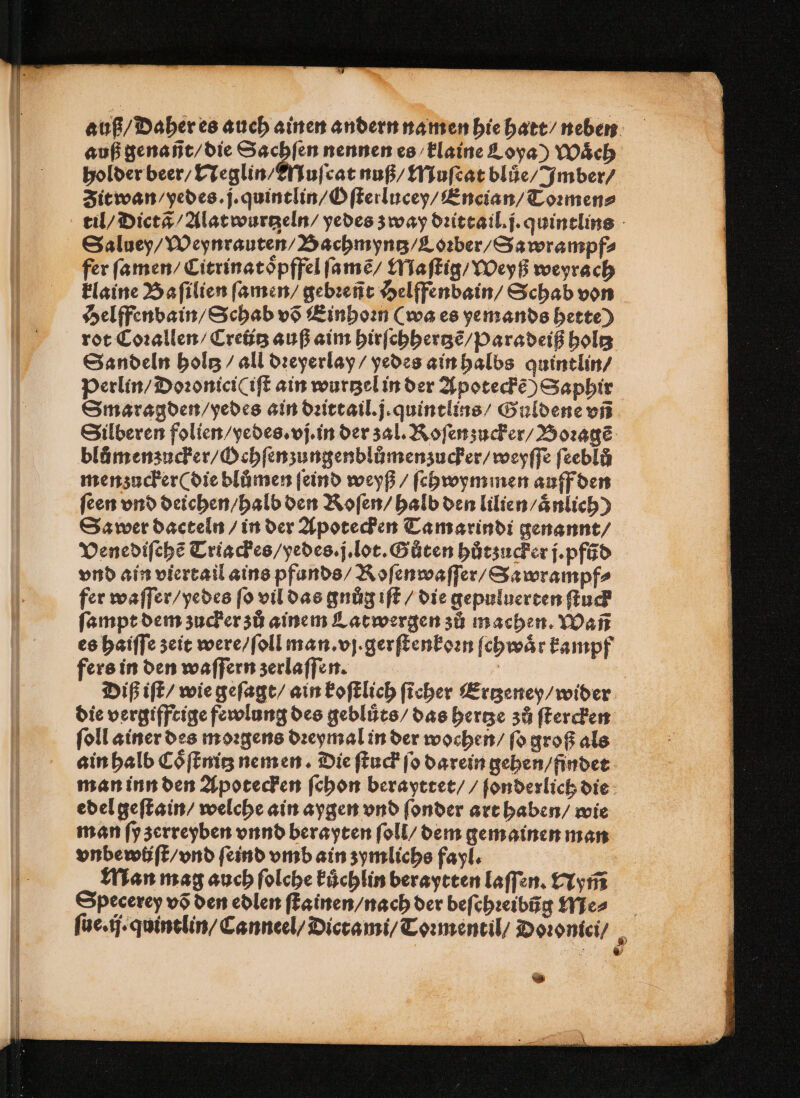 auß/Daher es auch ainen andern namen hie hatt/ neben
auß genañt/die Sachſen nennen es klaine Loya) Wåch
holder beer/Neglin/Muſcat nuß/Muſcat blůe/Jmber/
Zitwan/yedes.j.quintlin/Oſterlucey/Encian/Tormen⸗
til/Dictã/Alatwurtzeln/ yedes zway drittail.j.quintlins
Saluey/Weynrauten/Bachmyntz/Lorber/Sawrampf⸗
fer ſamen/Citrinatoͤpffel ſamẽ/ Maſtig/Weyß weyrach
klaine Baſilien ſamen/ gebreñt Helffenbain/ Schab von
Helffenbain/Schab võ Einhorn (wa es yemands hette)
rot Corallen/Creütz auß aim hirſchhertzẽ/Paradeiß holtz
Sandeln holtz / all dreyerlay / yedes ain halbs quintlin/
Perlin/Doronici(iſt ain wurtzel in der Apoteckẽ)Saphir
Smaragden/yedes ain drittail.j.quintlins/ Guldene vñ
Silberen folien/yedes.vj.in der zal.Roſenzucker/Boragẽ
blůmenzucker/Ochſenzungenblůmenzucker/weyſſe ſeeblů
menzucker(die blůmen ſeind weyß / ſchwymmen auff den
ſeen vnd deichen/halb den Roſen/ halb den lilien/aͤnlich)
Sawer dacteln / in der Apotecken Tamarindi genannt/
Venediſchẽ Triackes/yedes.j.lot.Gůten hůtzucker j.pfũd
vnd ain viertail ains pfunds/ Roſenwaſſer/Sawrampf⸗
fer waſſer/yedes ſo vil das gnůg iſt / die gepuluerten ſtuck
ſampt dem zucker zů ainem Latwergen zů machen. Wañ
es haiſſe zeit were/ſoll man.vj.gerſtenkorn ſchwaͤr kampf
fers in den waſſern zerlaſſen.
Diß iſt/ wie geſagt/ ain koſtlich ſicher Ertzeney/wider
die vergifftige fewlung des geblůts/ das hertze zů ſtercken
ſoll ainer des morgens dreymal in der wochen/ ſo groß als
ain halb Coͤſtnitz nemen. Die ſtuck ſo darein gehen/findet
man inn den Apotecken ſchon berayttet/ / ſonderlich die
edel geſtain/ welche ain aygen vnd ſonder art haben/ wie
man ſy zerreyben vnnd berayten ſoll/ dem gemainen man
vnbewüſt/vnd ſeind vmb ain zymlichs fayl.
Man mag auch ſolche kůchlin beraytten laſſen. Nym̃
Specerey võ den edlen ſtainen/nach der beſchreibũg Me⸗
ſue.ij.quintlin/Canneel/Dictami/Tormentil/ Doronici/